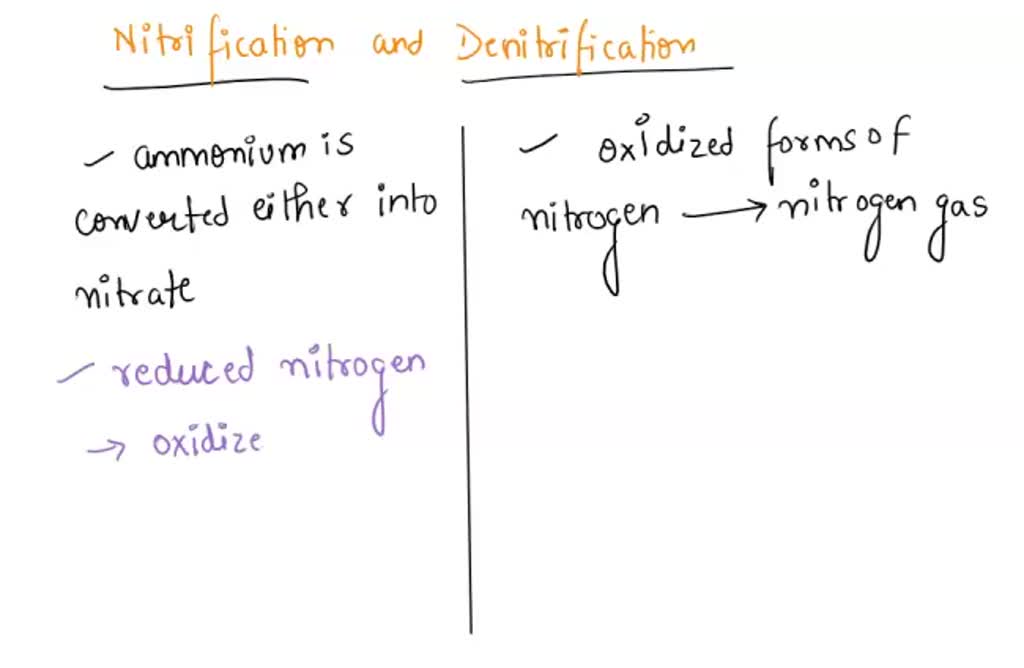 Nitrification and Denitrification
ammonium is
converted either into
nitrate
reduced nitrogen
→ oxidize
oxidized forms of
nitrogen → nitrogen gas